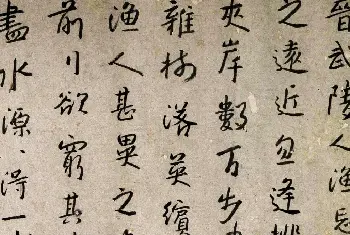 晉武陵人漁
之遠近忽逢桃
夾岸數百步
雜樹落英繽
漁人甚異之
前行欲窮其
盡水源〻得一